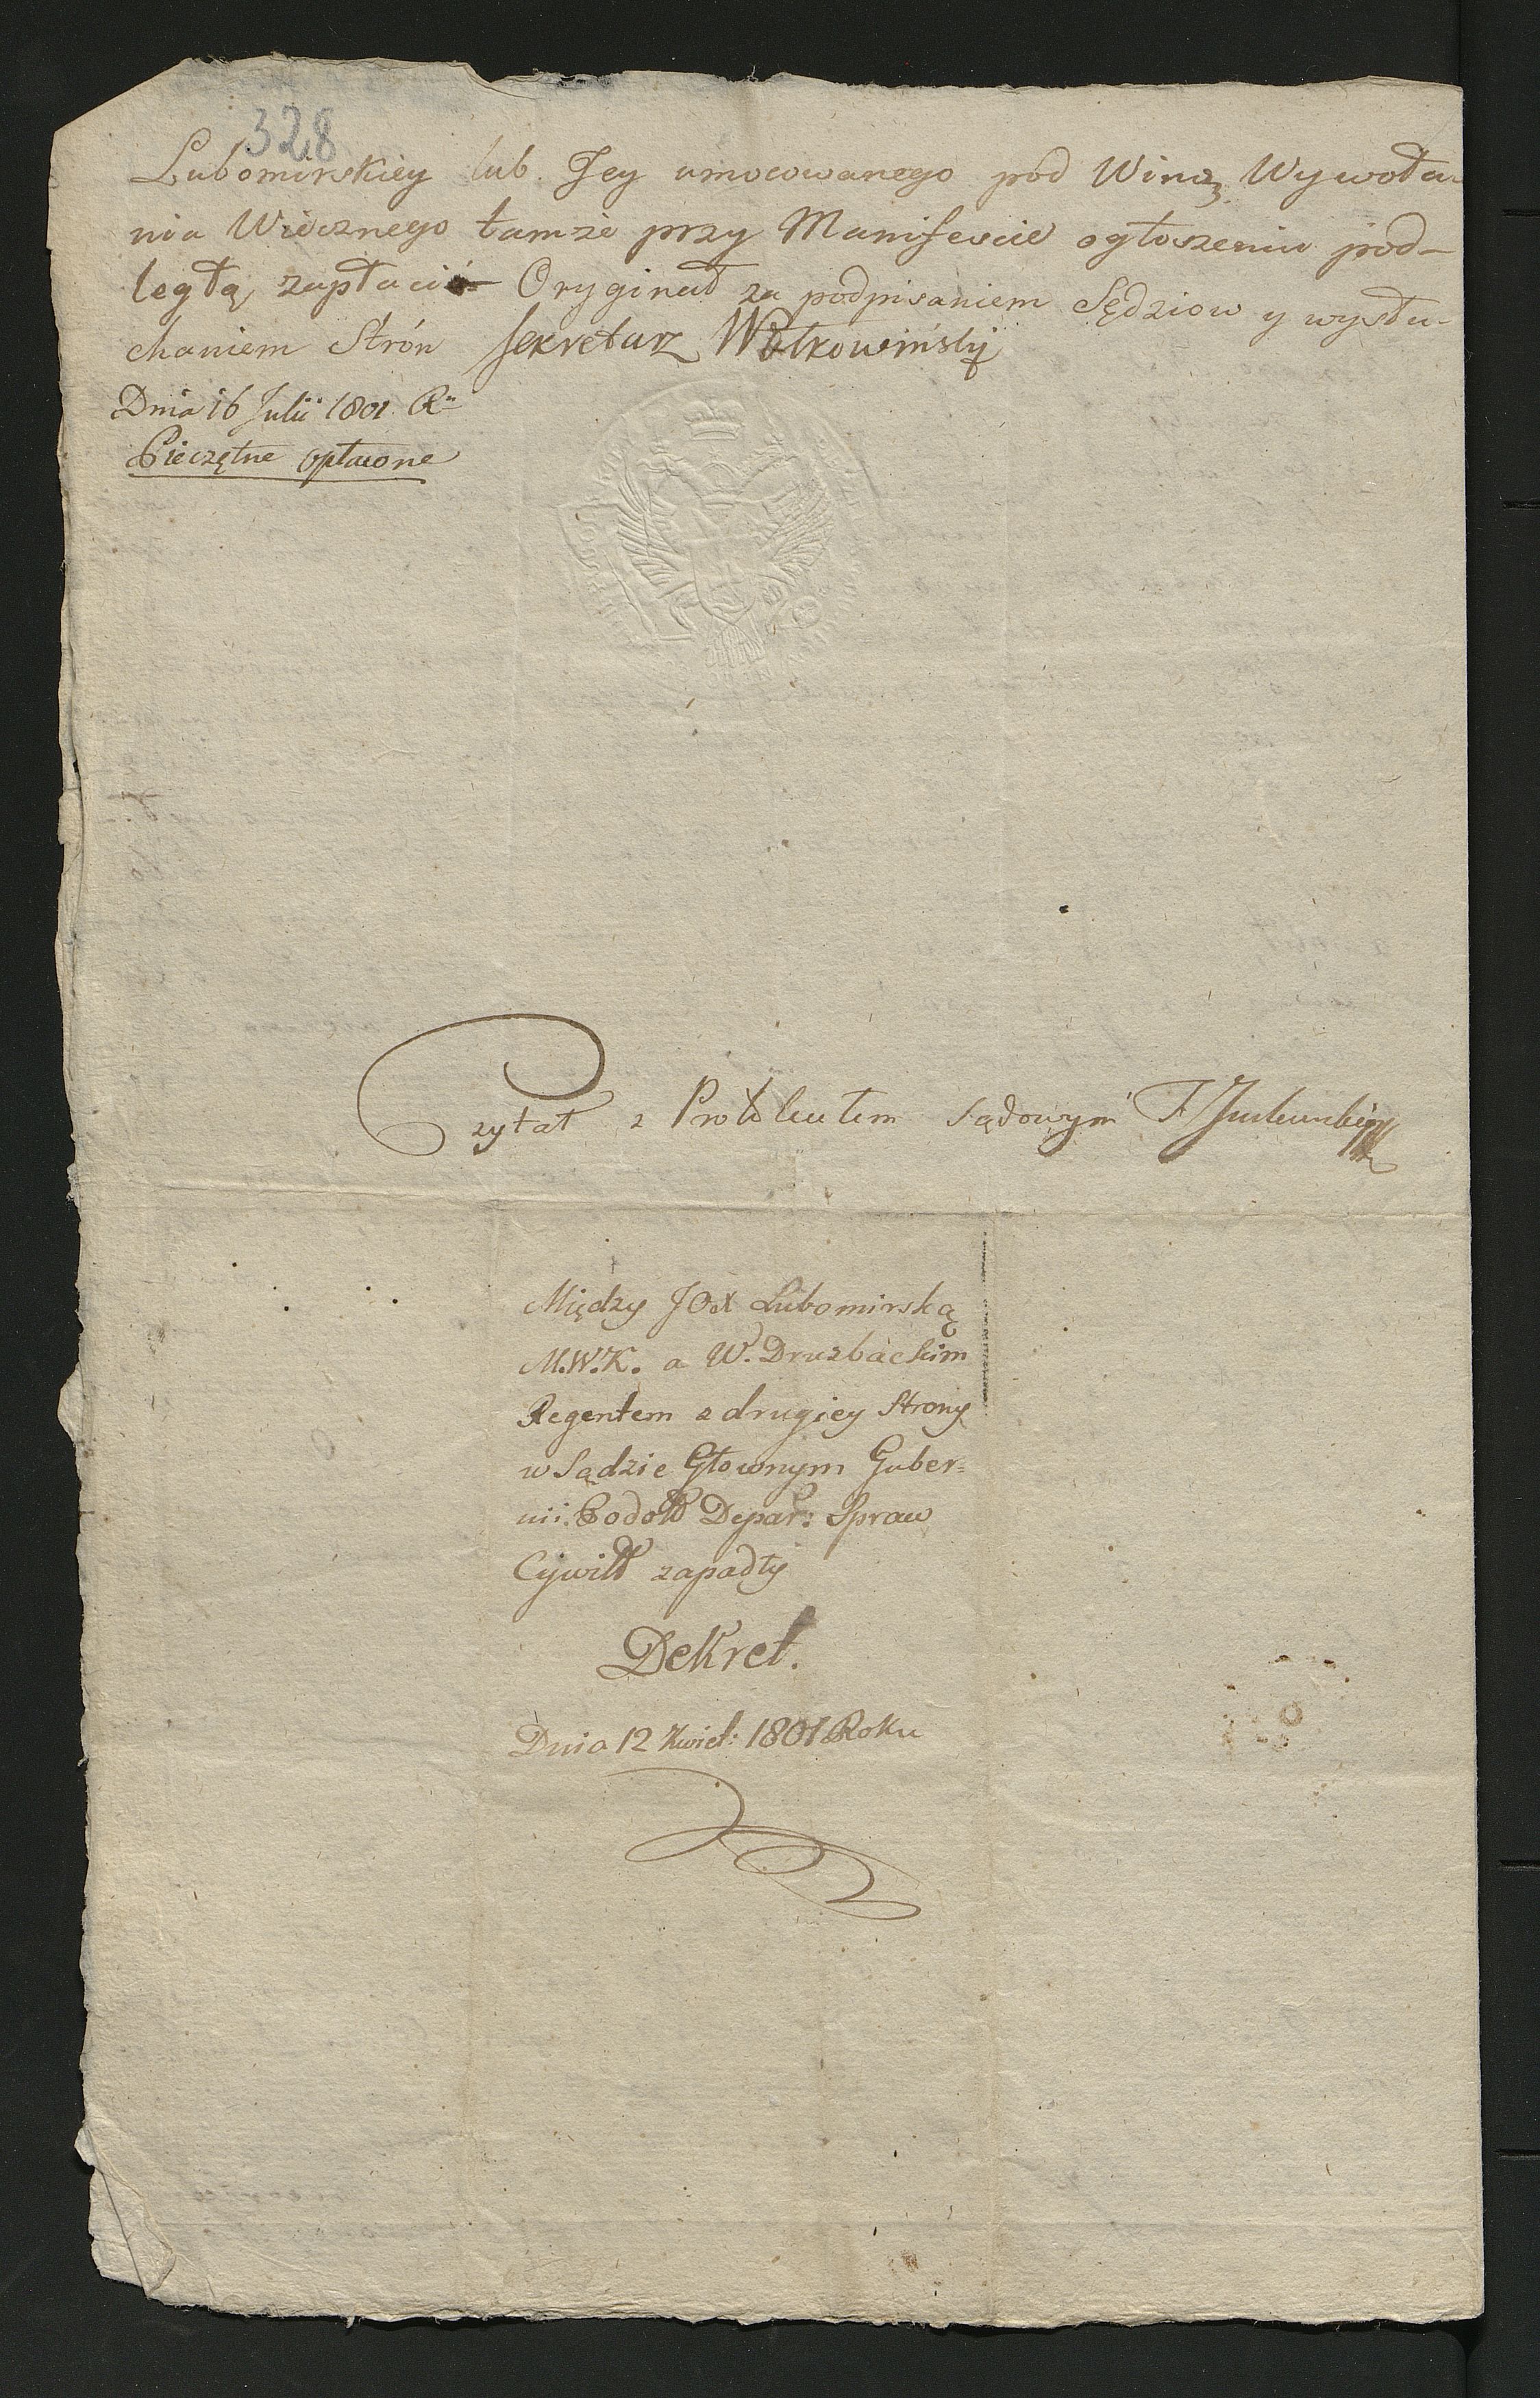 328
Lubomirskiey lub Jey umocowanego pod Winą Wywoła-
nia Wiecznego tamże przy Manifescie ogłoszeniu pod-
ległą zapłaci Oryginał za podpisaniem Sędziow y wysłu-
chaniem Strón Sekretarz
Dnia 16 Julii 1801 Rº
Pieczętne opłacone
Czytał z Protokułem Sądowym
Między JOX Lubomirską
M.W.K. a W. Druzbackim
Regentem z drugiey Strony
w Sądzie Głownym Guber=
nii. Podoll Depar: Spraw
Cywill zapadły
Dekret.
Dnia 12 Kwiet: 1801 Roku